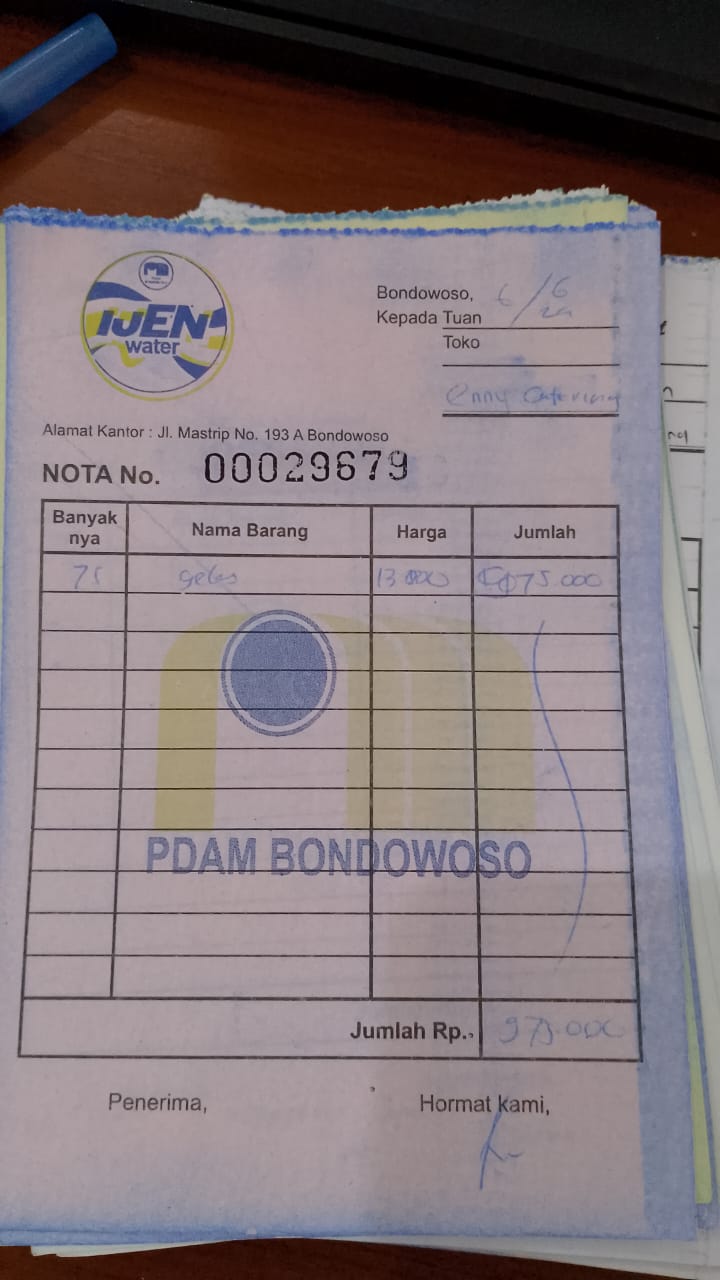 IJEN
water
Bondowoso, 6/6
Kepada Tuan
Toko
enny Catering
Alamat Kantor : Jl. Mastrip No. 193 A Bondowoso
NOTA No. 00029679
Banyak nya Nama Barang Harga Jumlah
75 gelas 13.000 975.000
PDAM BONDOWOSO
Jumlah Rp.. 975.000
Penerima, Hormat kami,